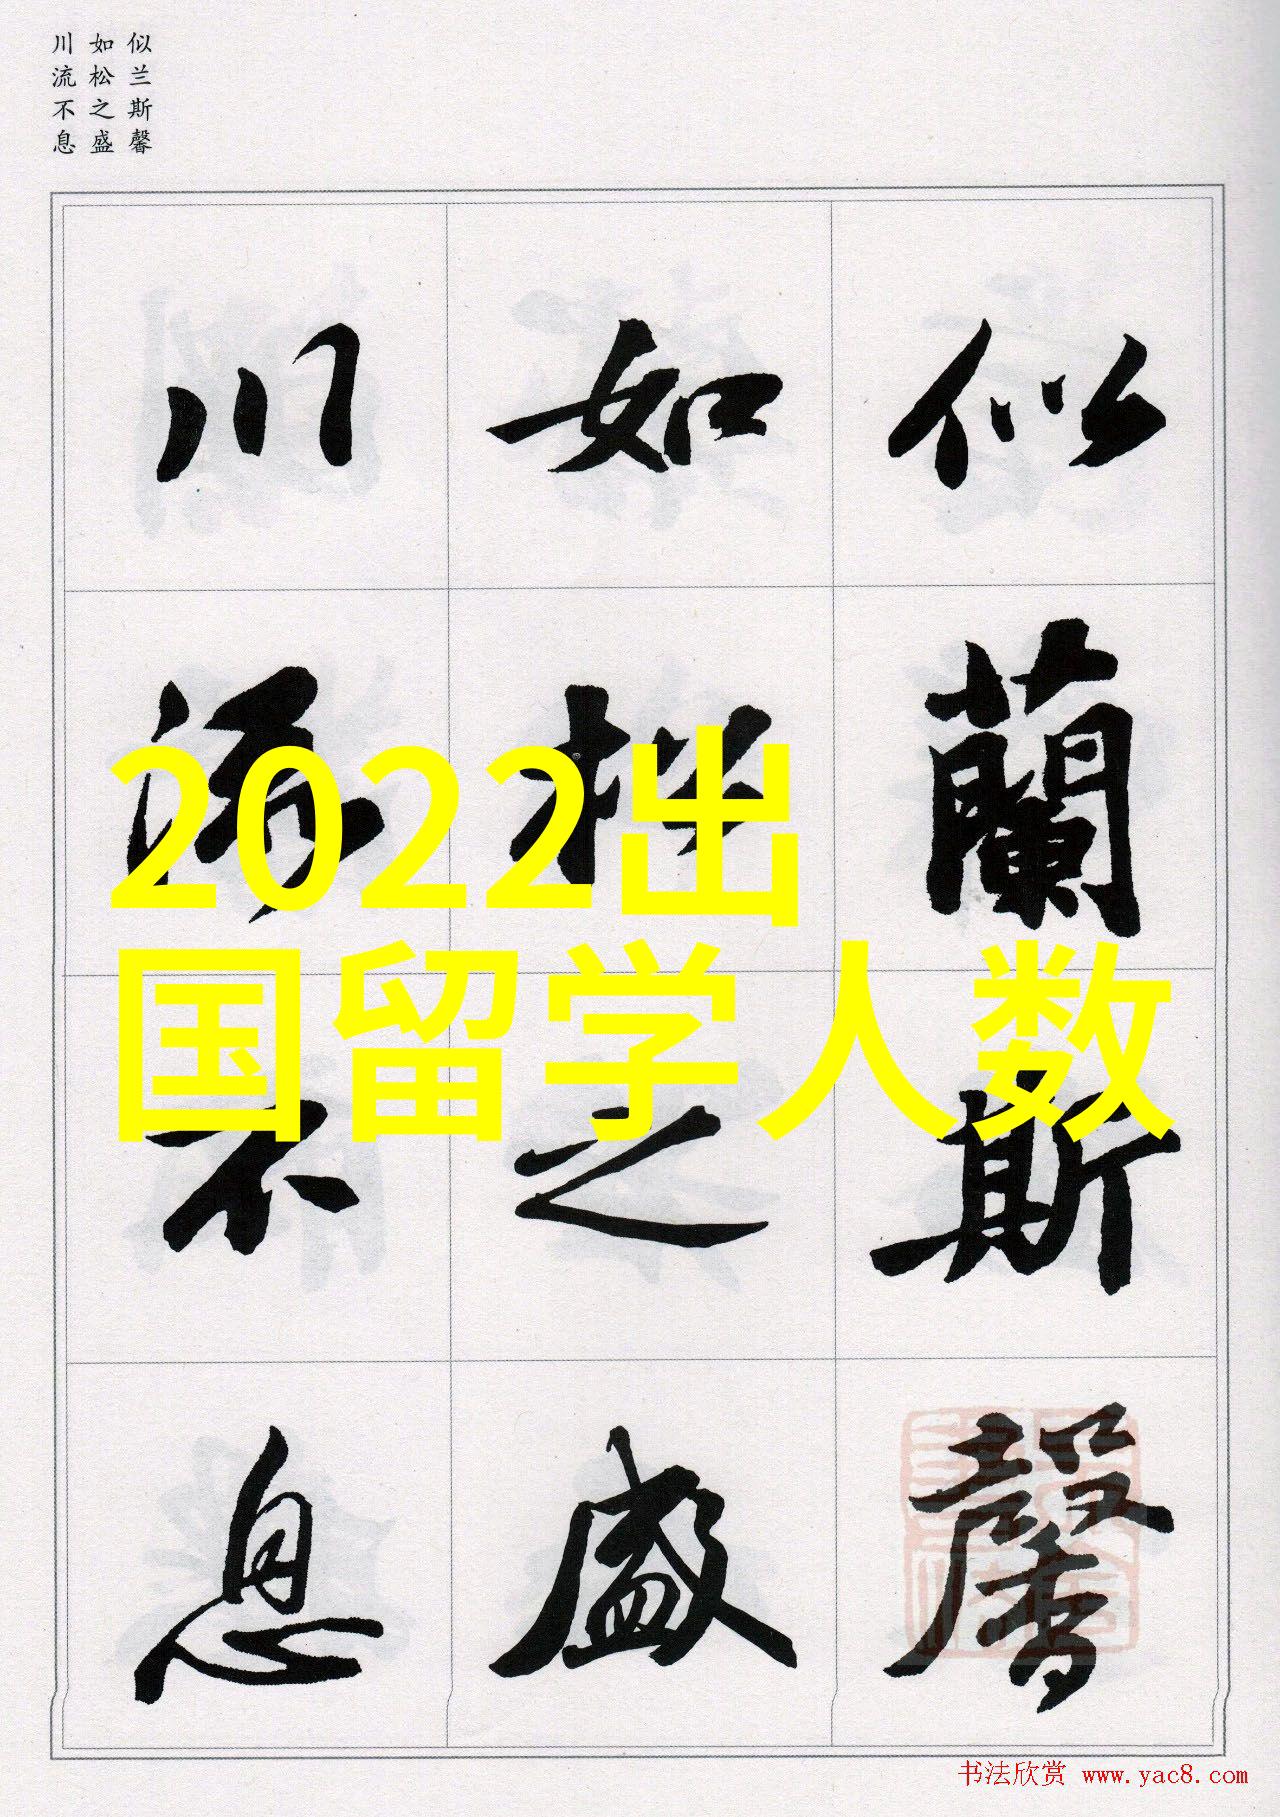 似兰斯馨
如松之盛
川流不息
似蘭斯馨
如松之盛
川流不息
2022出
国留学人数
书法欣赏 www.yac8.com